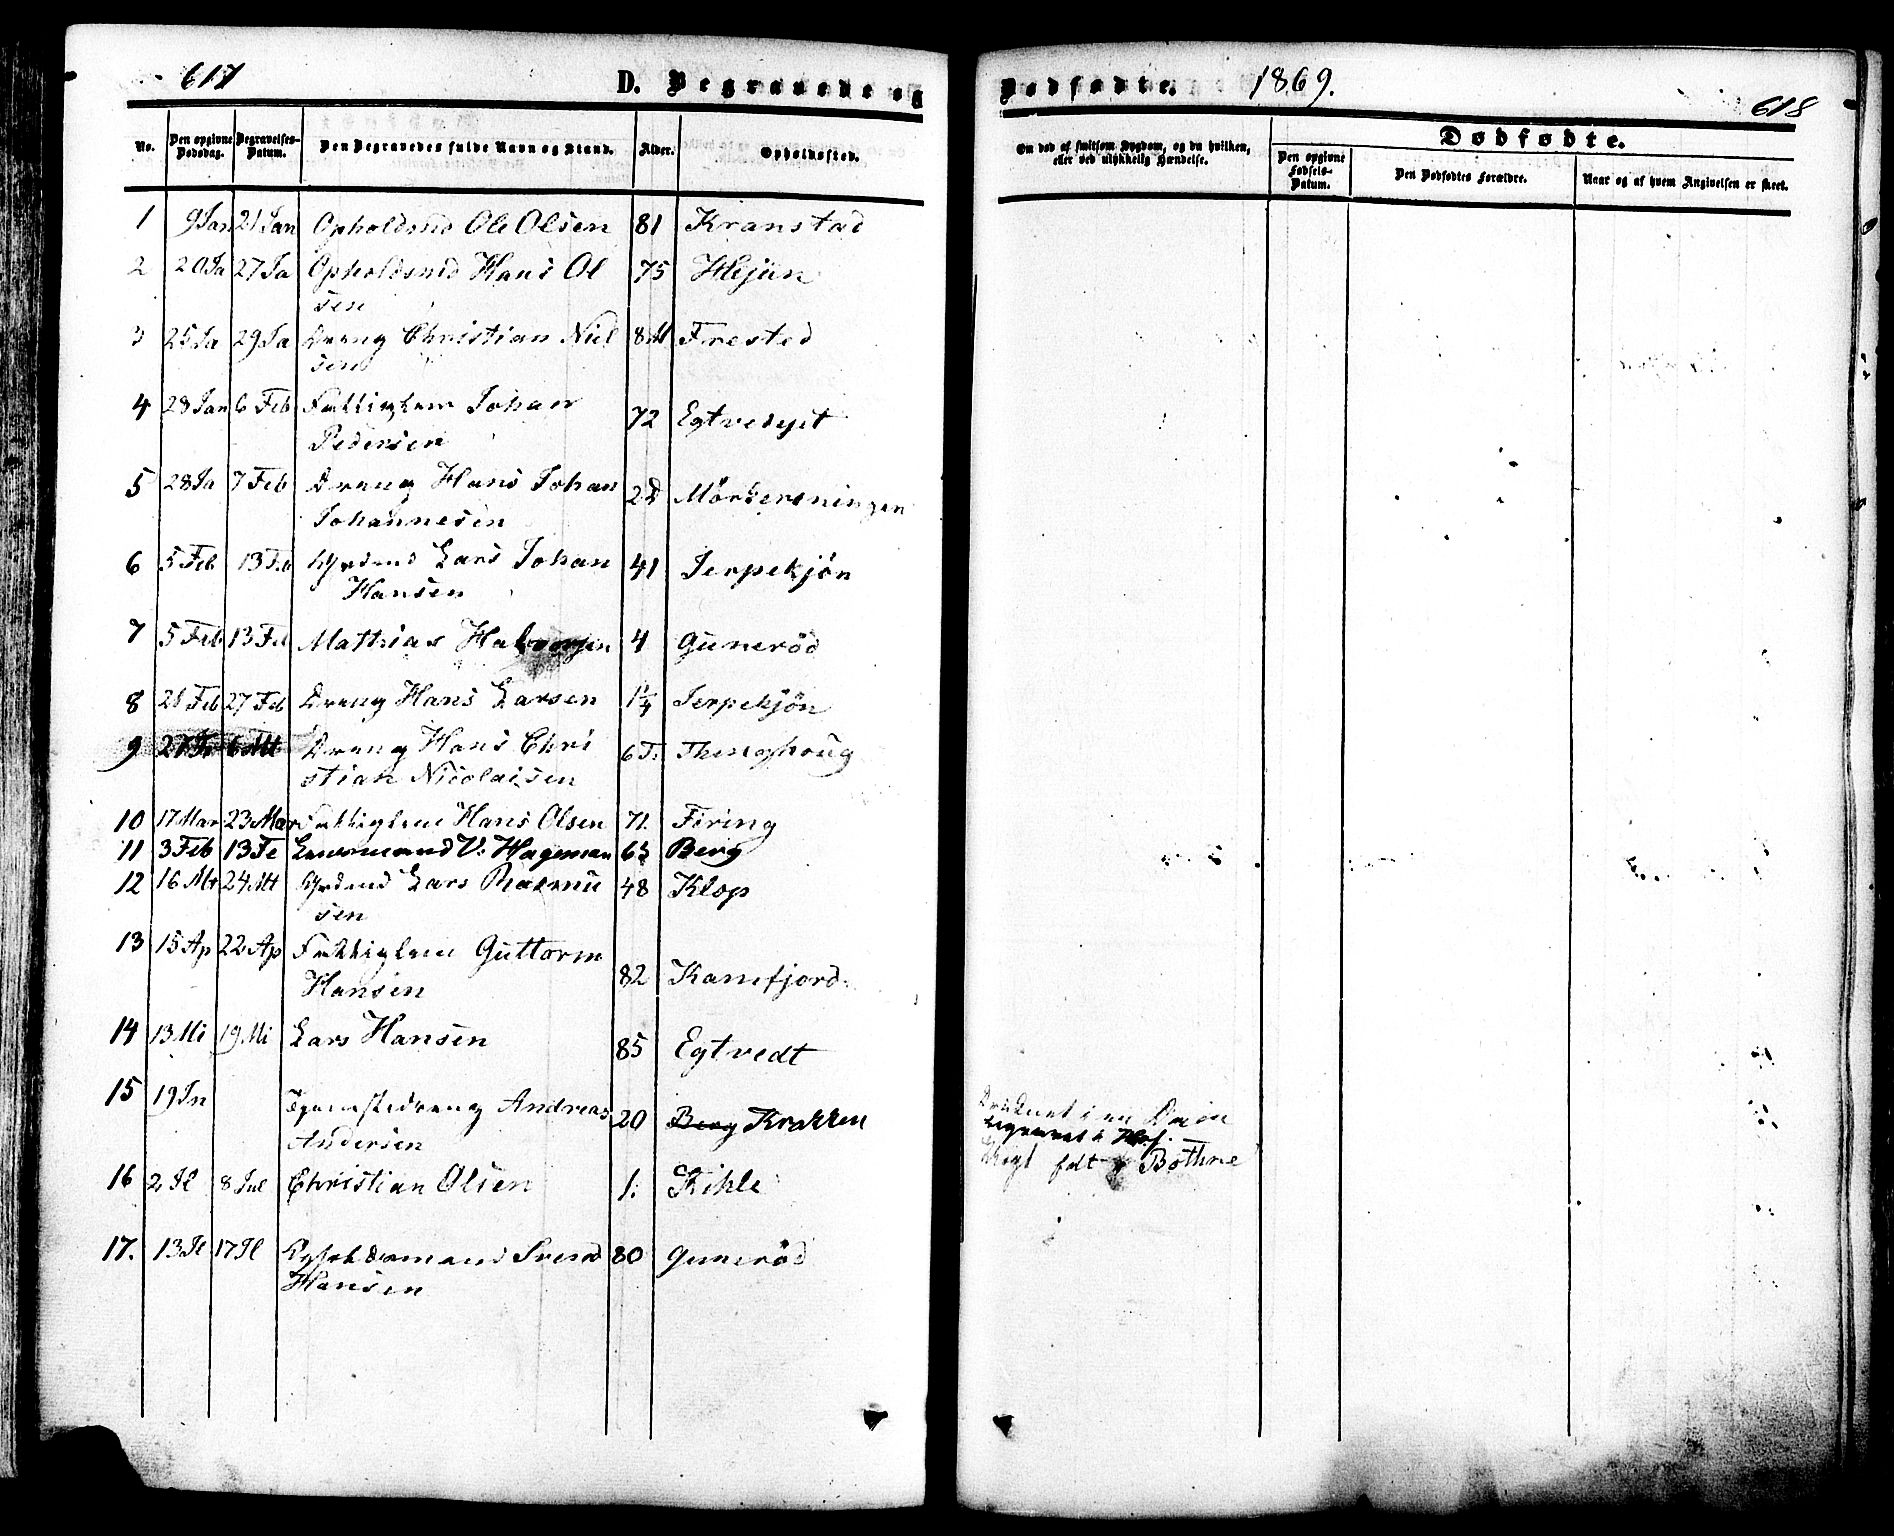 617
D. Begravede og
No.
Den opgivne Dødsdag.
Begravelses-Datum.
Den Begravedes fulde Navn og Stand.
Alder.
Opholdssted.
1 9 Jan 21 Jan Opholdsmd Ole Olsen 81 Kranstad
2 20 Ja 27 Ja Opholdsmd Hans Ol 75
sen
3 25 Ja 29 Ja Dreng Christian Niel 8 M Frested
sen
4 28 Jan 6 Feb Fattiglem Johan
Pedersen 72
5 28 Ja 7 Feb Dreng Hans Johan
Johannesen
6 5 Feb 13 Feb Grdmd Lars Johan 41 Jerpekjön
Hansen
7 5 Feb 13 Feb Mathias Halvorsen 4 Gunerød
8 21 Feb 27 Feb Dreng Hans Larsen 1¼ Jerpekjön
9 Dreng Hans Chri
stian Nicolaisen
10 17 Mar 23 Mar Fattiglem Hans Olsen 71. Föring
11 3 Feb 13 Fe Lensmand V: Hageman 65 Berg
12 16 Mt 24 Mt Grdmd Lars Rasmu 48 Klop
sen
13 15 Ap 22 Ap Fattiglem Guttorm
Hansen 82 Kamfjord
14 13 Mi 19 Mi Lars Hansen 85 Egtvedt
15 19 Jn Tjenestedreng Andreas 20 Berg Krakken
Andersen
16 2 Jl 8 Jul Christian Olsen 1. Kihle
17. 13 Jl 17 Jl Svend 80 Gunerød
Hansen
Dødfødte.
1869.
618
Om død af smitsom Sygdom, og da hvilken,
eller ved ulykkelig Hændelse.
Dødfødte.
Den opgivne Fødsels-Datum.
Den Dødfødtes Forældre.
Naar og af hvem Angivelsen er skeet.
Druknet i en
Bothne